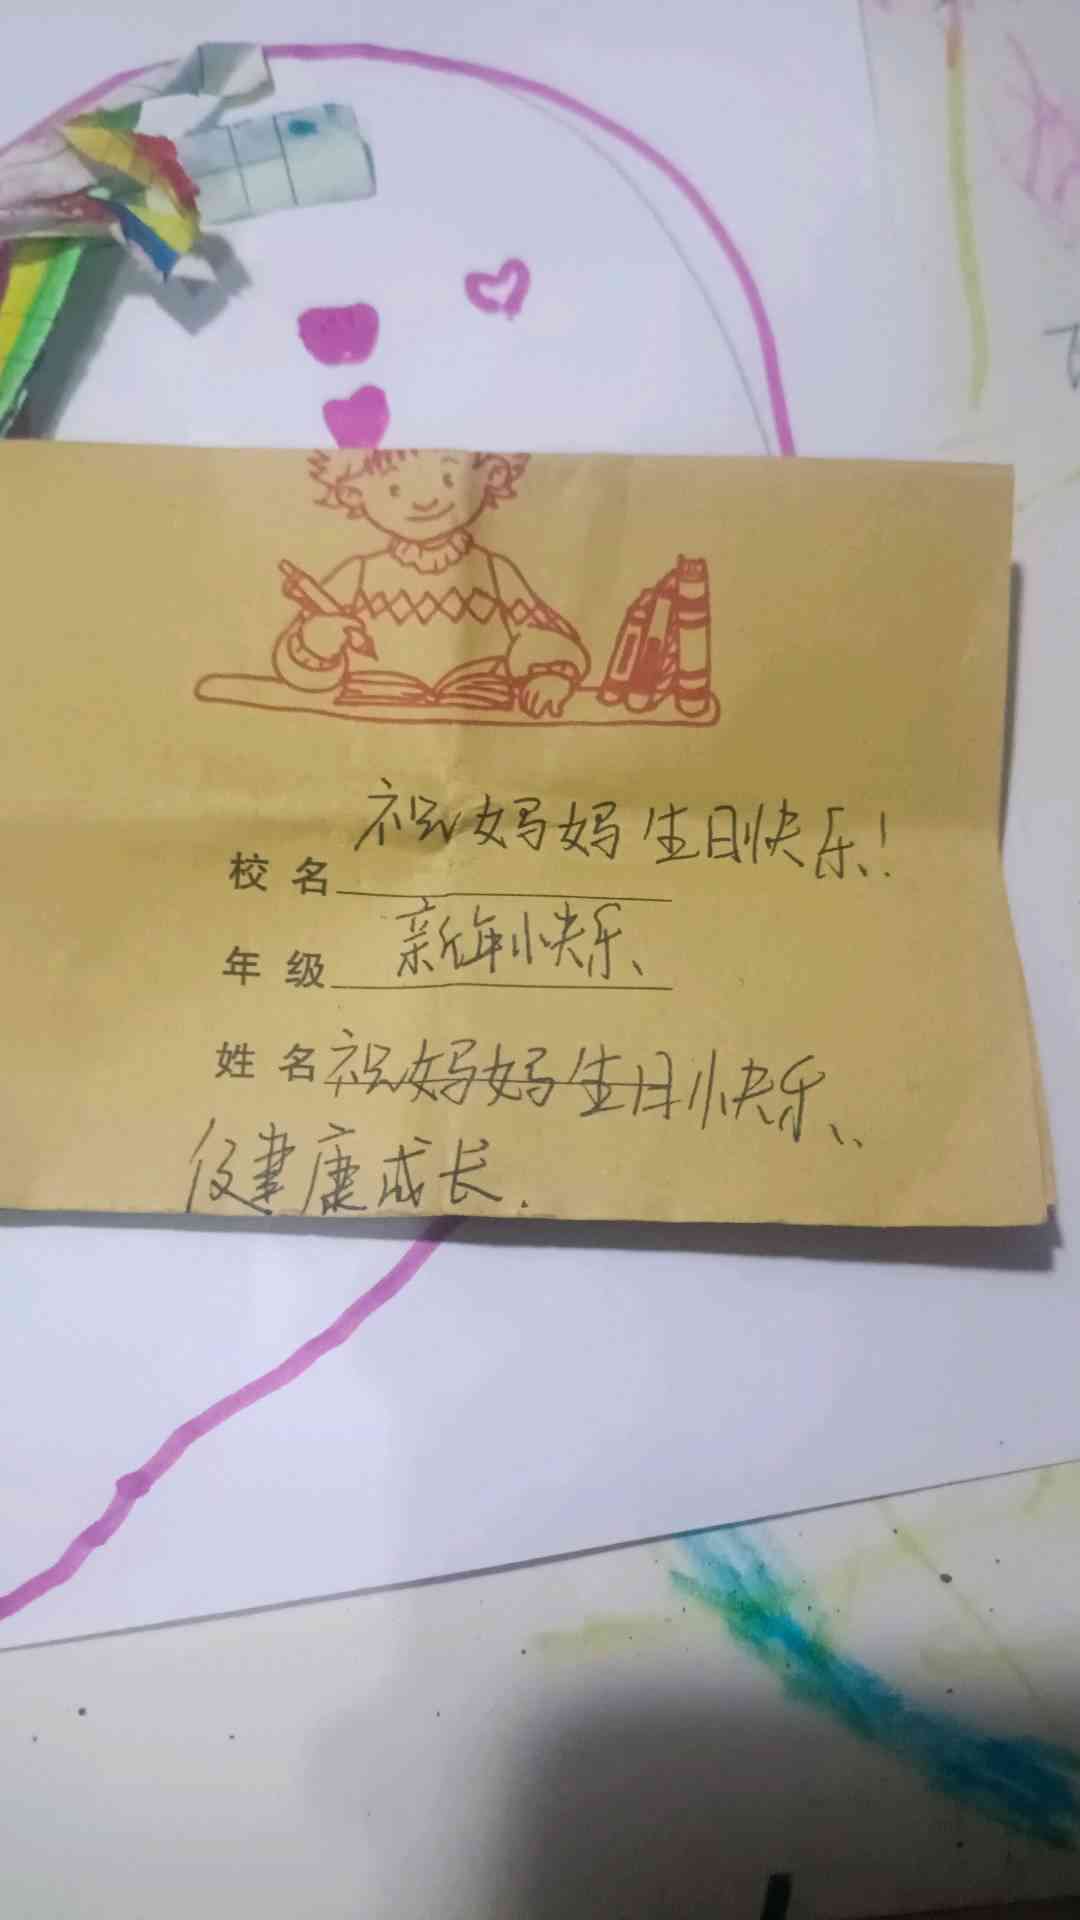 祝妈妈生日快乐!
校名
年级 新年快乐、
姓名 祝妈妈生日快乐、
健康成长.